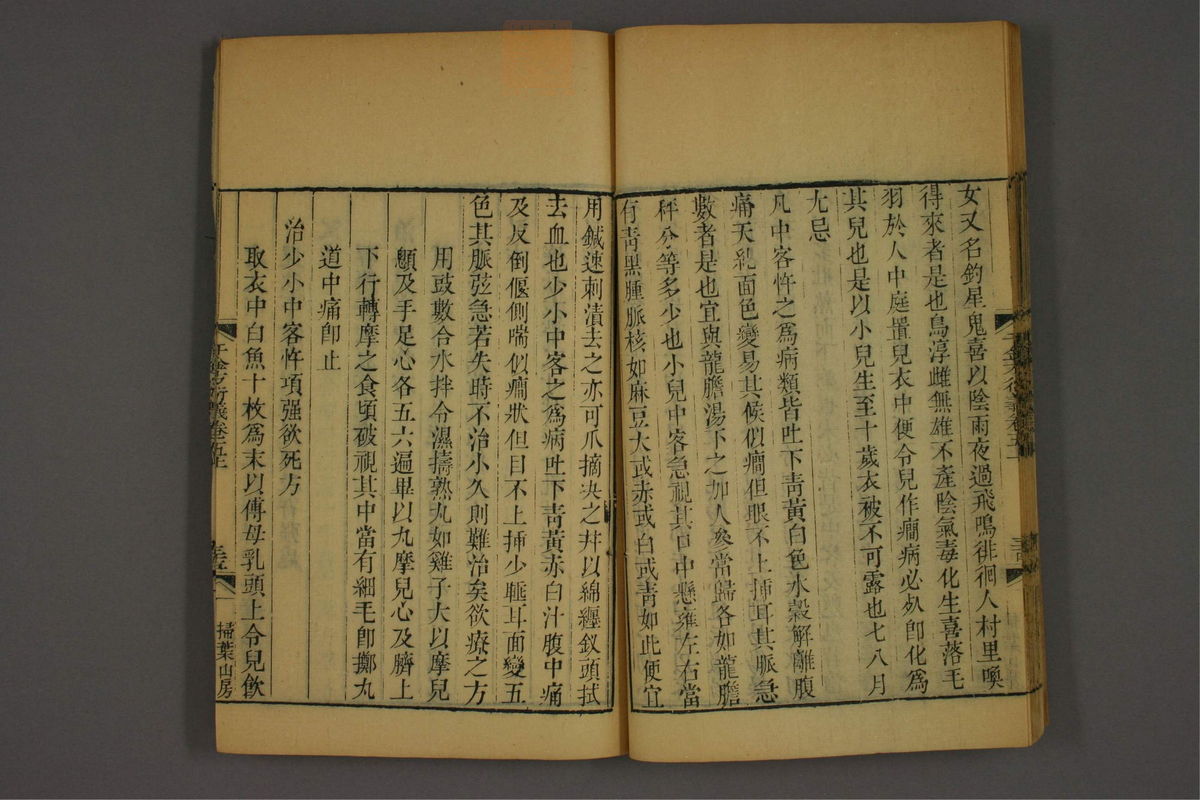 女又名鈎星鬼喜以陰雨夜過飛鳴徘徊人村里喚
得來者是也鳥淳雌無雄不產陰氣毒化生喜落毛
羽於人中庭置兒衣中便令兒作癇病必死即化為
其兒也是以小兒生至十歲衣被不可露也七八月
尤忌
凡中客忤之為病類皆吐下青黃白色水穀解離腹
痛夭糺面色變易其候似癇但眼不上揷耳其脈急
數者是也宜與龍膽湯下之加人參當歸各如龍膽
秤分等多少也小兒中客急視其口中懸雍左右當
有青黑腫脈核如麻豆大或赤或白或青如此便宜
用鍼速刺漬去之亦可爪摘决之并以綿纏釵頭拭
去血也少小中客之為病吐下青黃赤白汁腹中痛
及反倒偃側喘似癇狀但目不上揷少睡耳面變五
色其脈弦急若失時不治小久則難治矣欲療之方
用豉數合水拌令濕擣熟丸如雞子大以摩兒
顖及手足心各五六遍畢以丸摩兒心及臍上
下行轉摩之食頃破視其中當有細毛卽擲丸
道中痛卽止
治少小中客忤項强欲死方
取衣中白魚十枚為末以傅母乳頭上令兒飲
千金方衍義卷五上
掃葉山房